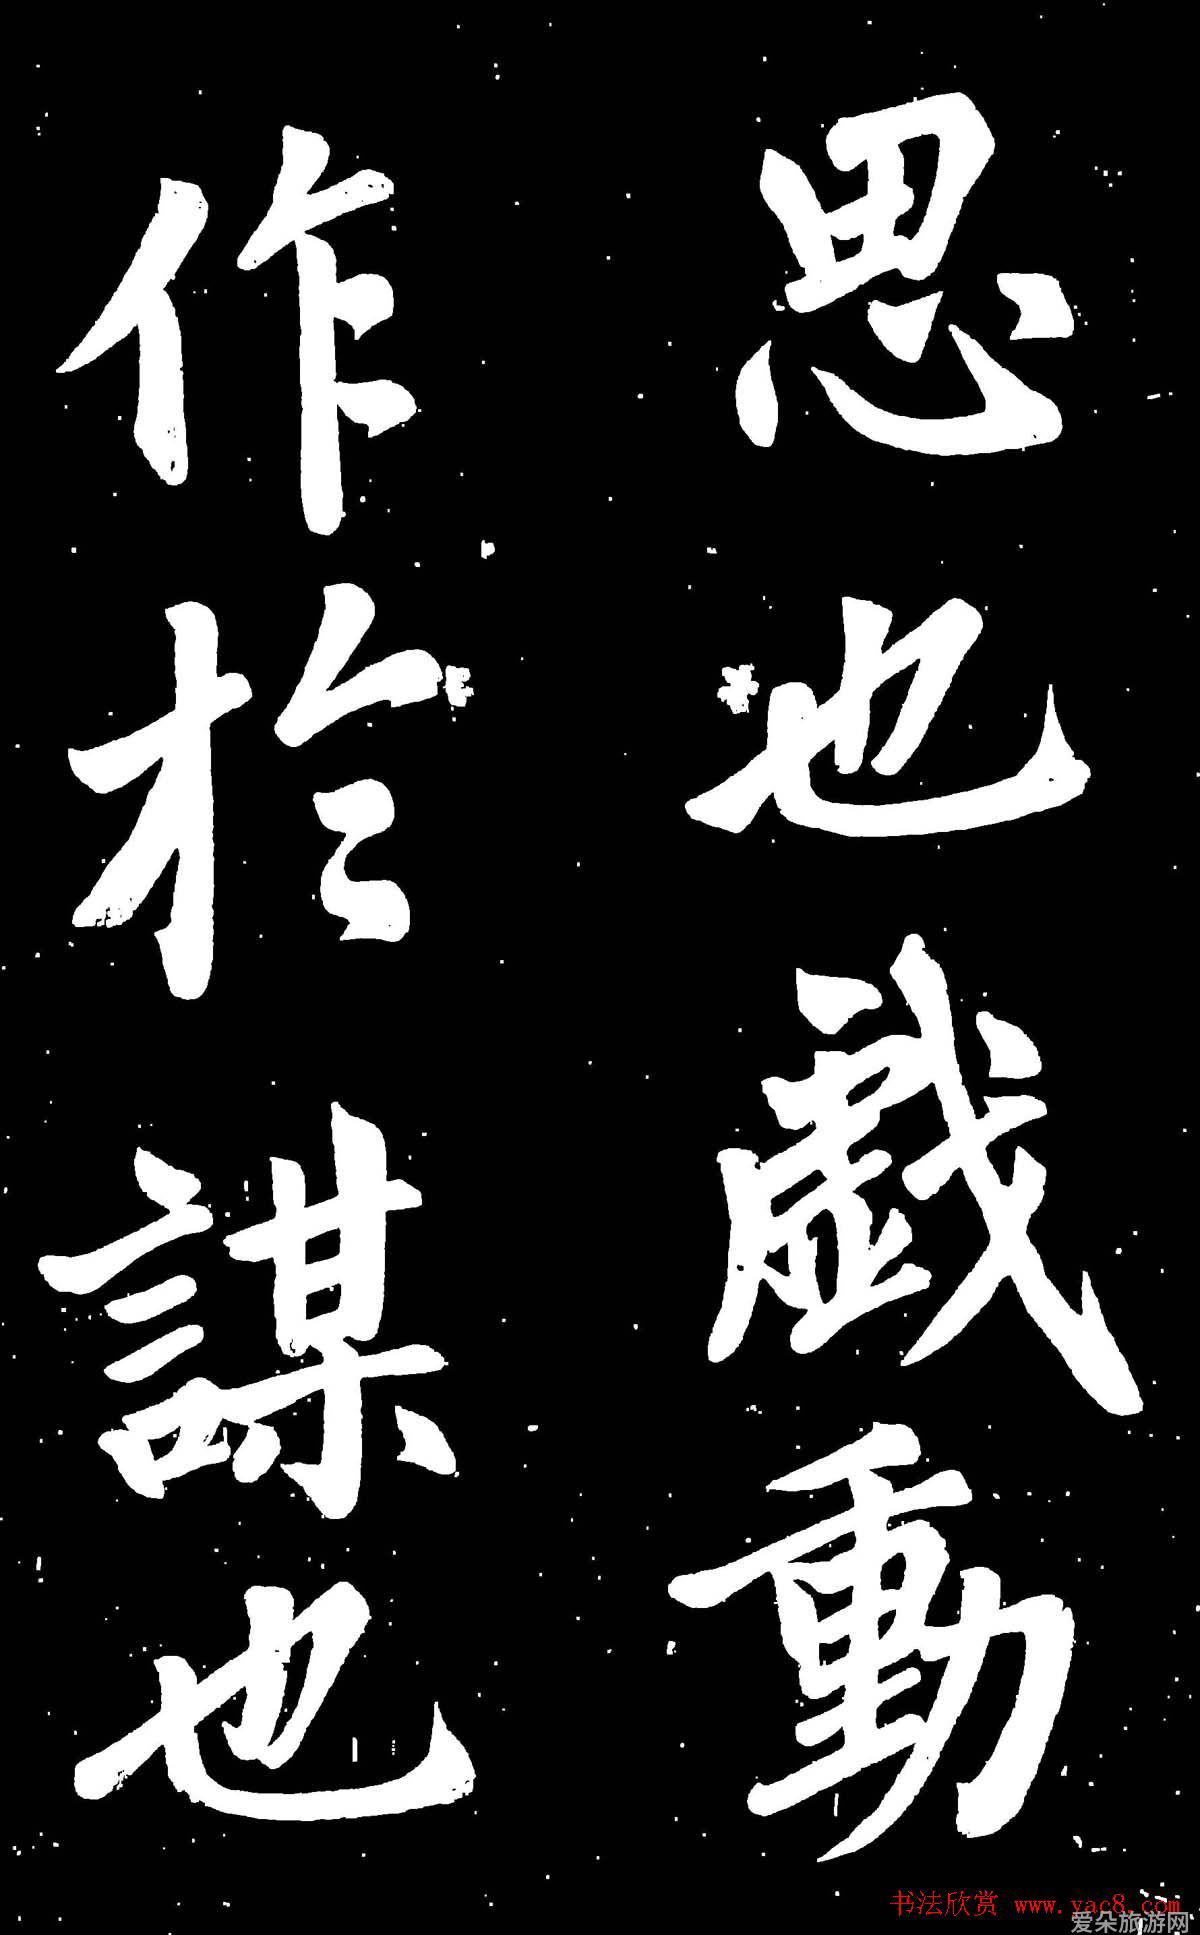 思也戯動
作於謀也
书法欣赏 www.yac8.com
爱朵旅游网